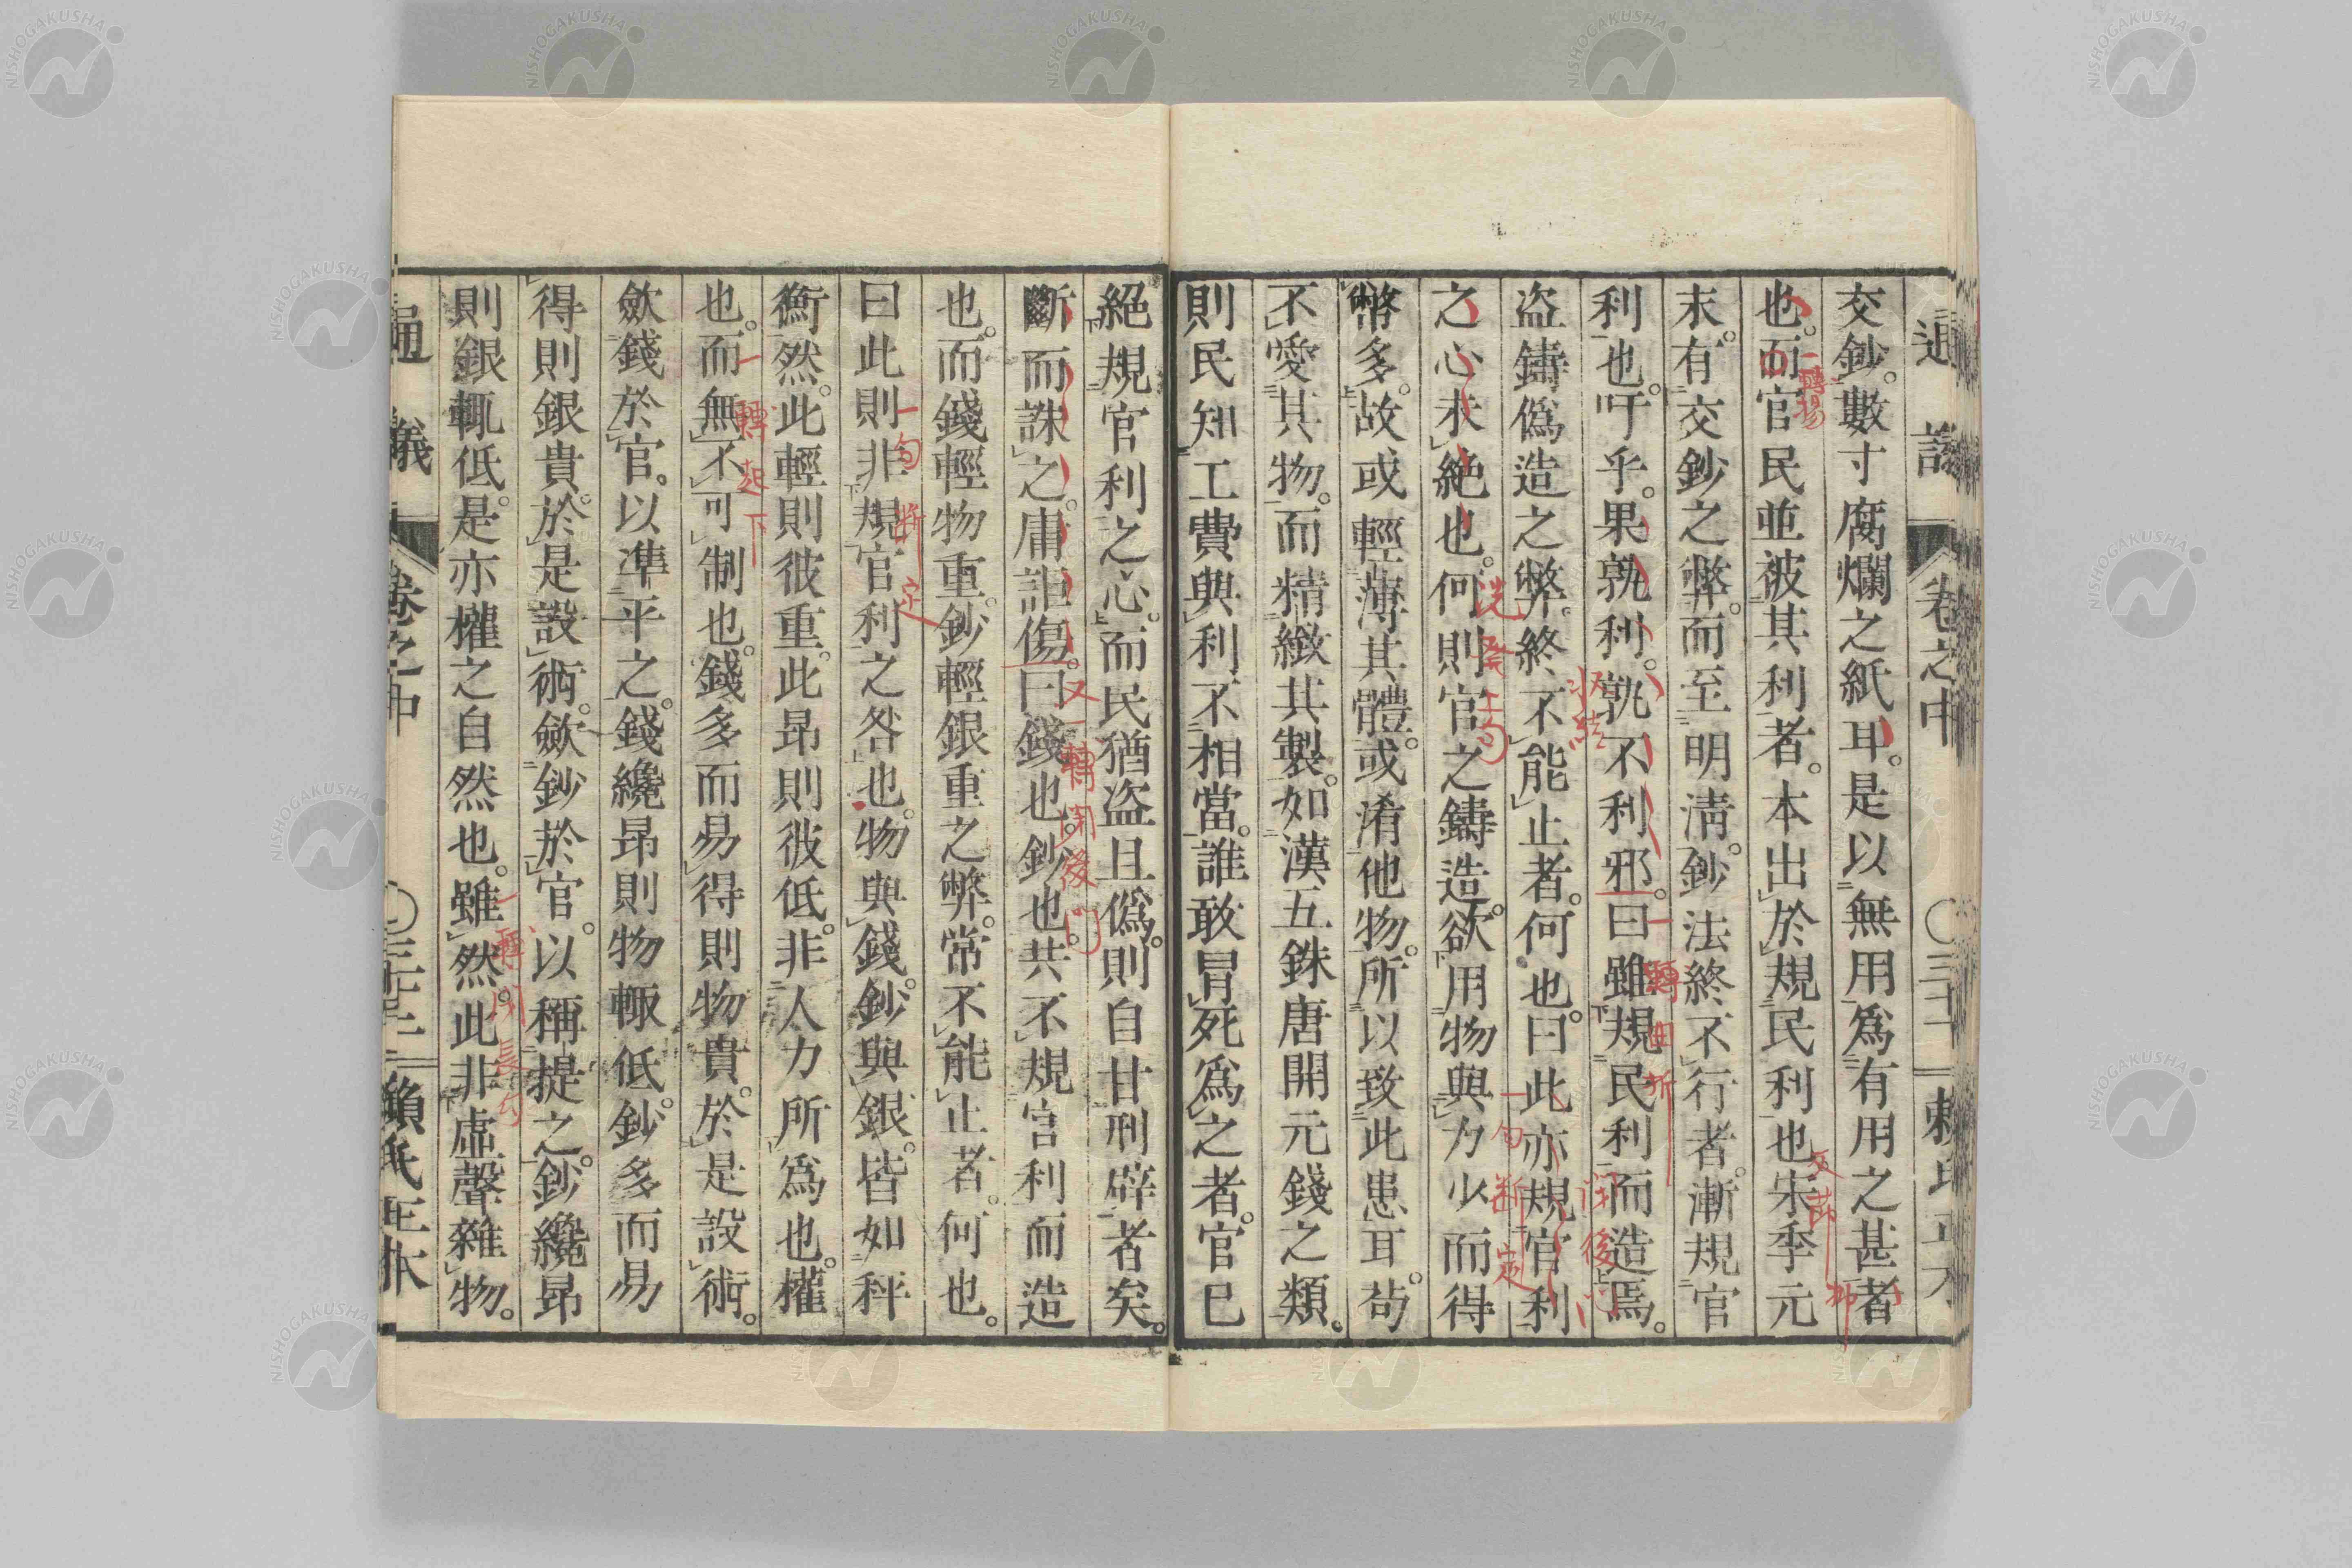 通議 卷之中 三十二 賴氏正本
交鈔。數寸腐爛之紙耳。是以無用爲有用之甚者
也。而官民並被其利者。本出於規民利也宋季元
末。有交鈔之弊。而至明淸。鈔法終不行者。漸規官
利也。吁乎。果孰利。孰不利邪。曰雖規民利而造焉。
盜鑄僞造之弊。終不能止者。何也。曰此亦規官利
之心未絕也。何則官之鑄造。欲用物與力少而得
幣多。故或輕薄其體。或淆他物。所以致此患耳。苟
不愛其物。而精緻其製。如漢五銖唐開元錢之類。
則民知工費與利不相當。誰敢冒死爲之者。官已
絕規官利之心。而民猶盜且僞。則自甘刑辟者矣。
斷而誅之。庸詎傷。曰錢也。鈔也。共不規官利而造
也。而錢輕物重。鈔輕銀重之弊。常不能止者。何也。
曰此則非規官利之咎也。物與錢。鈔與銀。皆如秤
衡然。此輕則彼重。此昂則彼低。非人力所爲也。權
也。而無不可制也。錢多而易得則物貴。於是設術。
斂錢於官。以準平之。錢纔昂則物輙低。鈔多而易
得則銀貴。於是設術。斂鈔於官。以稱提之。鈔纔昂
則銀輙低。是亦權之自然也。雖然。此非虛聲雜物。
通議 卷之中 三十二 賴氏正本
一轉揚
一轉曲折
一句斷定
又一轉開後門
一句斷定
一轉起下
一轉開長句
NISHOGAKUSHA